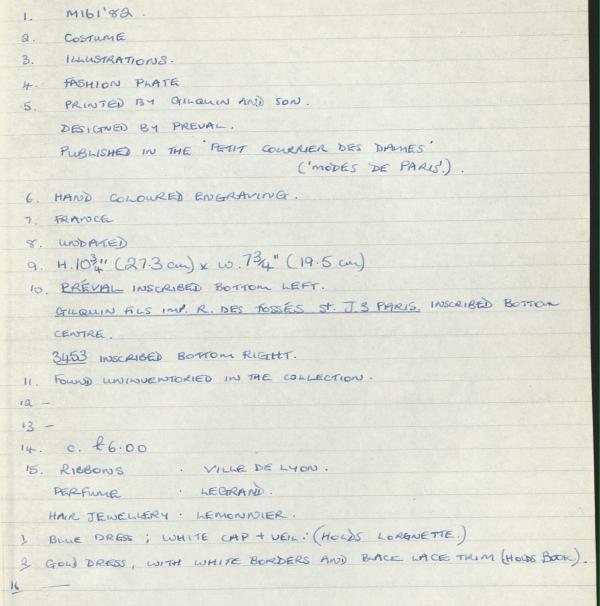 1. M161'82.
2. COSTUME
3. ILLUSTRATIONS.
4. FASHION PLATE
5. PRINTED BY GILQUIN AND SON.
DESIGNED BY PREVAL.
PUBLISHED IN THE 'PETIT COURRIER DES DAMES'
('MODES DE PARIS').
6. HAND COLOURED ENGRAVING.
7. FRANCE
8. UNDATED
9. H. 10¾" (27.3 cm) x W. 7¾" (19.5 cm)
10. PRÉVAL INSCRIBED BOTTOM LEFT.
GILQUIN FILS IMP. R. DES FOSSÉS St. J. 3 PARIS, INSCRIBED BOTTOM
CENTRE.
3453 INSCRIBED BOTTOM RIGHT.
11. FOUND UNINVENTORIED IN THE COLLECTION.
12 -
13 -
14. c. £6.00
15. RIBBONS . VILLE DE LYON.
PERFUME . LEGRAND.
HAIR JEWELLERY . LEMONNIER.
1 BLUE DRESS; WHITE CAP + VEIL: (HOLDS LORGNETTE.)
2 GOLD DRESS, WITH WHITE BORDERS AND BLACK LACE TRIM (HOLDS BOOK).
16 —